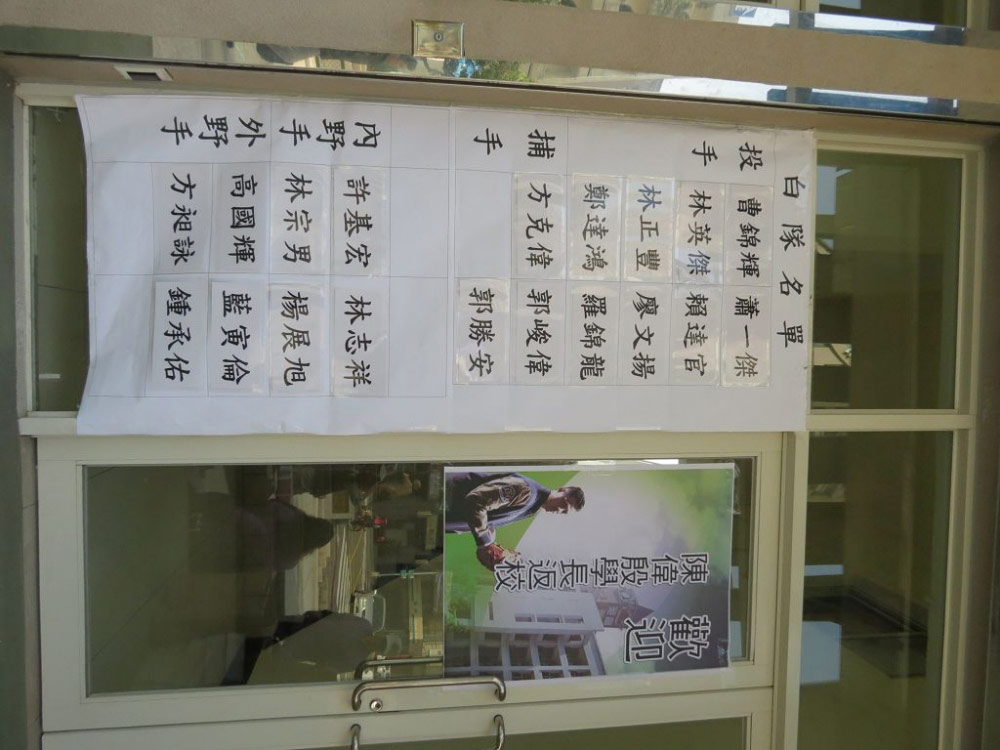 白隊名單
投手 曹錦輝 蕭一傑
林英傑 賴達官
林正豐 廖文揚
鄭達鴻 羅錦龍
捕手 方克偉 郭峻偉
郭勝安
內野手 許基宏 林志祥
林宗男 楊展旭
外野手 高國輝 藍寅倫
方昶詠 鍾承佑
歡迎
陳偉殷學長返校